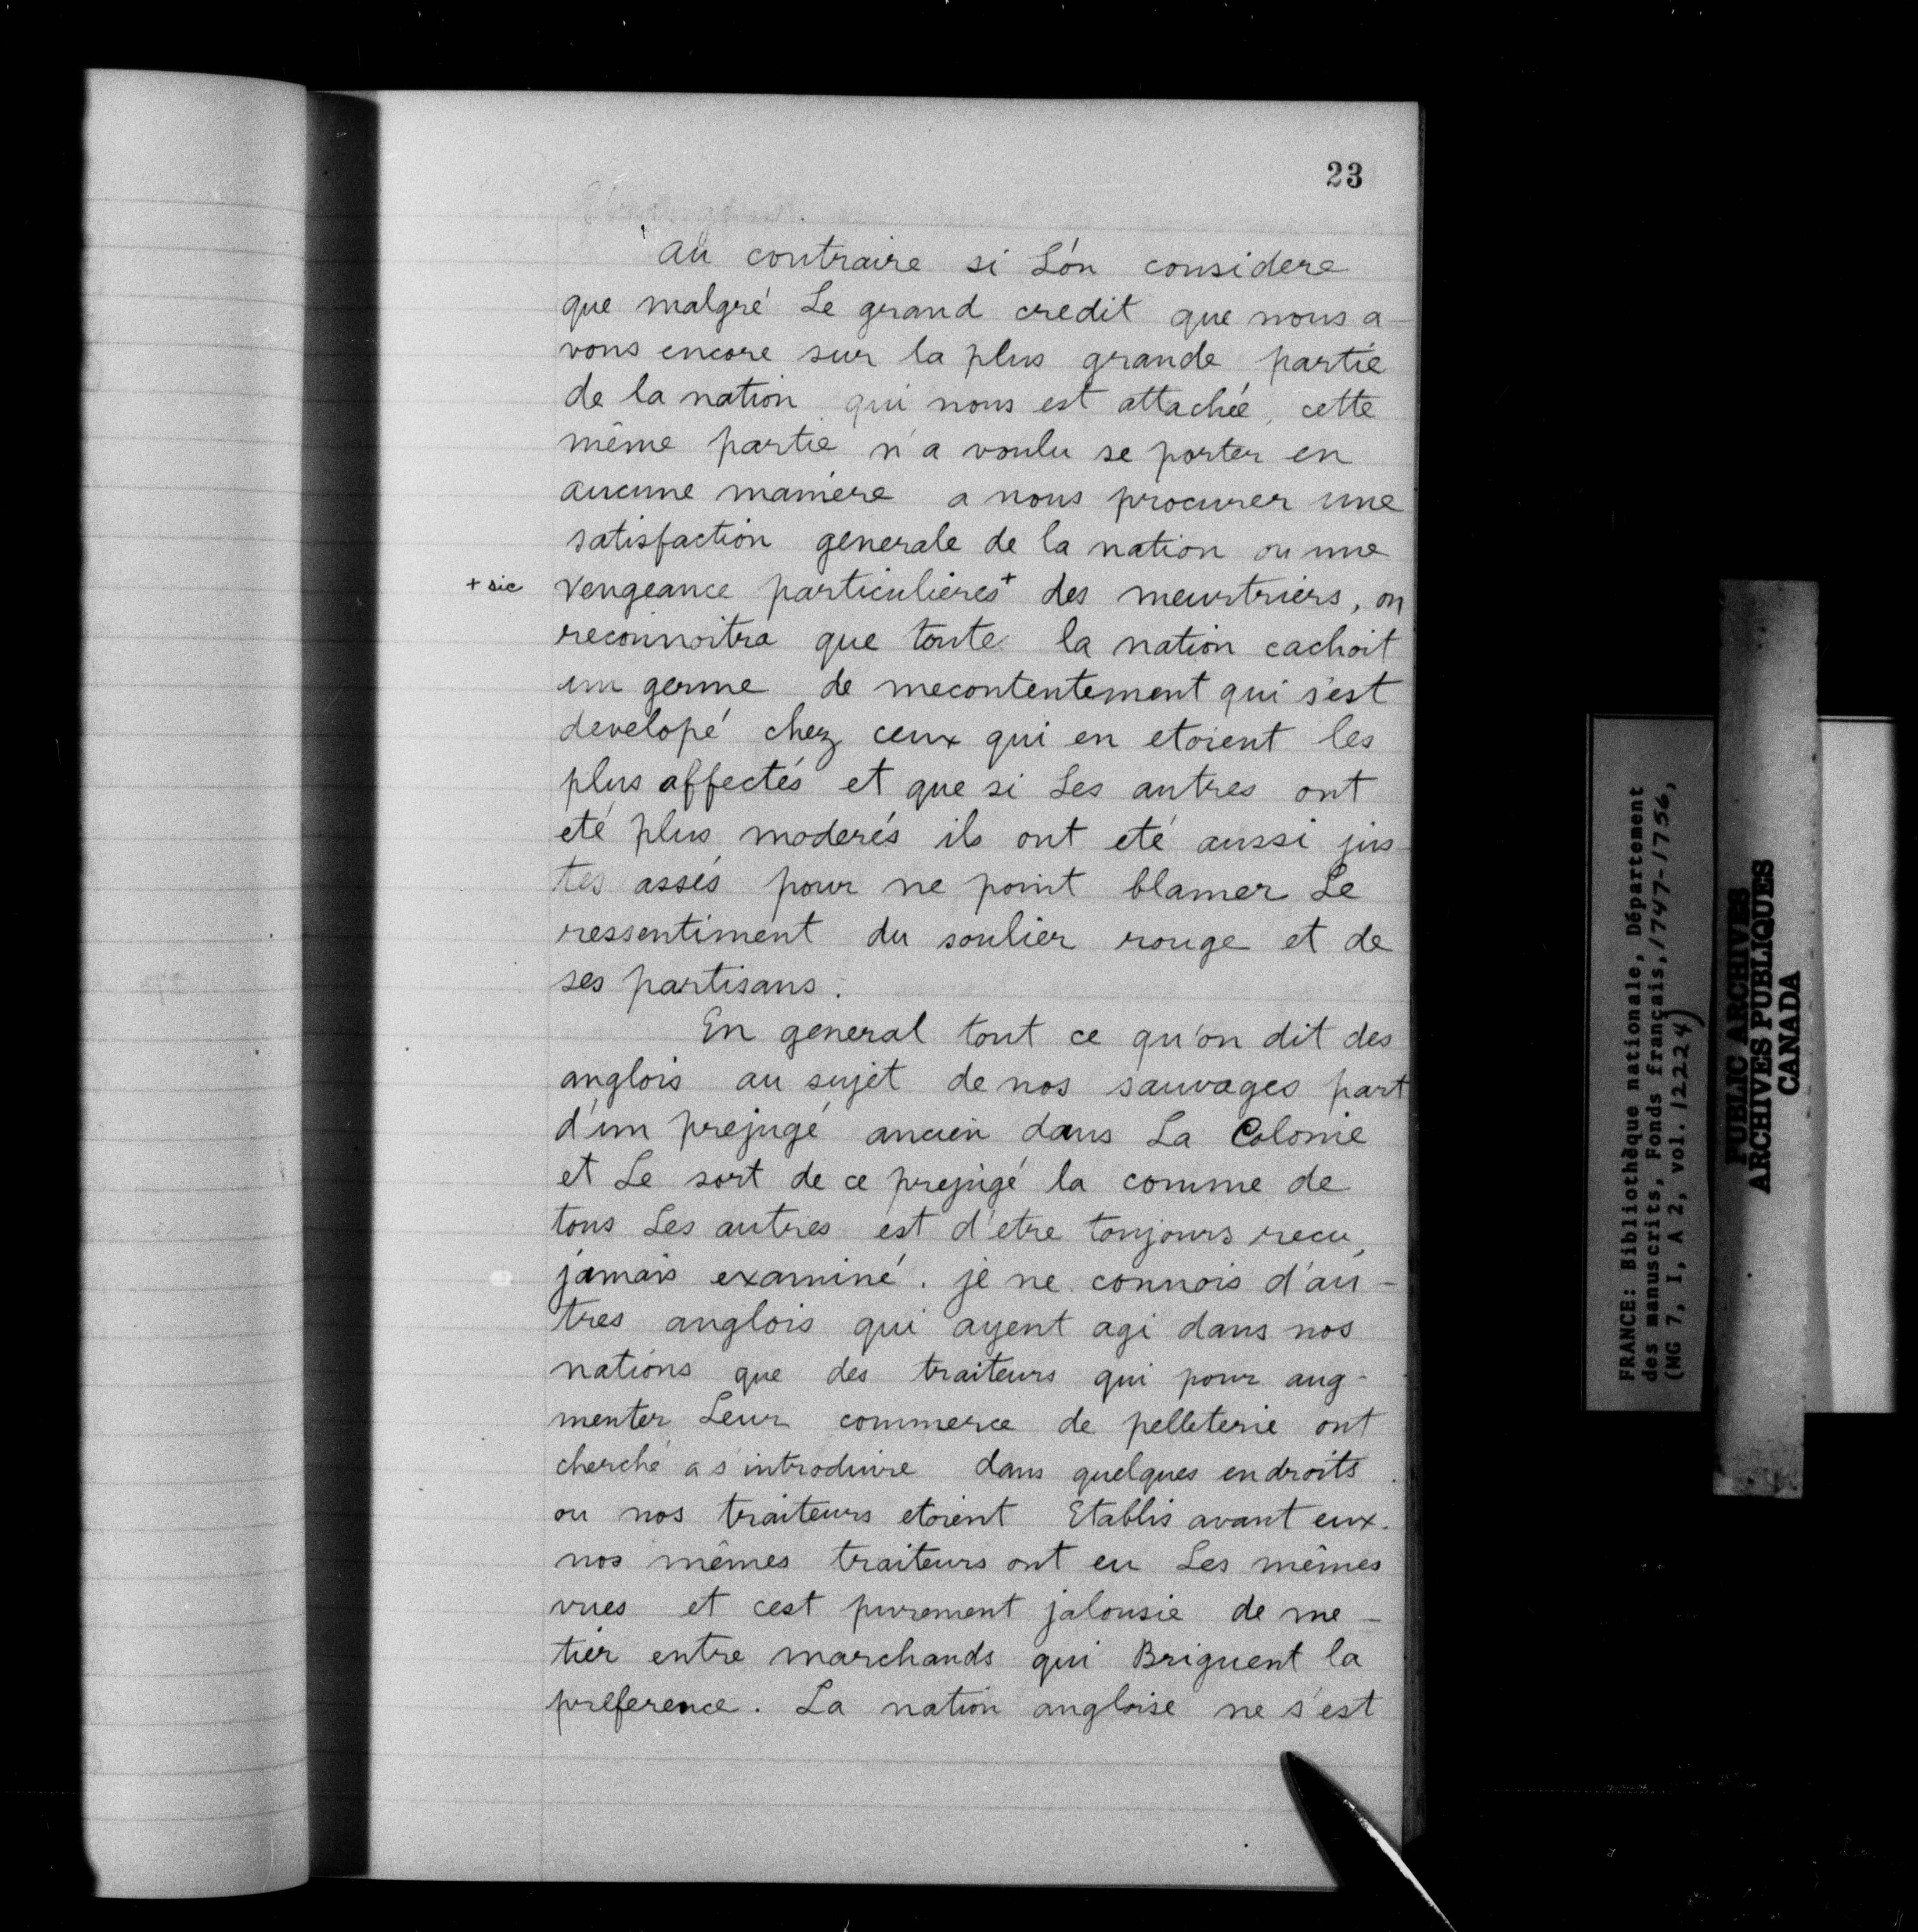 23
Au contraire si L'on considere
que malgré Le grand credit que nous a-
vons encore sur la plus grande partie
de la nation qui nous est attachée, cette
même partie n'a voulu se porter en
aucune maniere a nous procurer une
satisfaction generale de la nation ou une
+ sic vengeance particulieres+ des meurtriers, on
reconnoitra que toute la nation cachoit
un germe de mecontentement qui s'est
developé chez ceux qui en etoient les
plus affectés et que si Les autres ont
eté plus moderés ils ont eté aussi jus-
tes assés pour ne point blamer Le
ressentiment du soulier rouge et de
ses partisans.
En general tout ce qu'on dit des
anglois au sujet de nos sauvages part
d'un prejugé ancien dans La Colonie
et Le sort de ce prejugé la comme de
tous Les autres est d'etre toujours recu,
jamais examiné. je ne connois d'au-
tres anglois qui ayent agi dans nos
nations que des traiteurs qui pour aug-
menter Leur commerce de pelleterie ont
cherché a s'introduire dans quelques endroits
ou nos traiteurs etoient Etablis avant eux.
nos mêmes traiteurs ont eu Les mêmes
vues et cest purement jalousie de me-
tier entre marchands qui Briguent la
preference. La nation angloise ne s'est
FRANCE: Bibliothèque nationale, Département
des manuscrits, Fonds français, 1747-1756,
(MG 7, I, A 2, vol. 12224)
PUBLIC ARCHIVES
ARCHIVES PUBLIQUES
CANADA